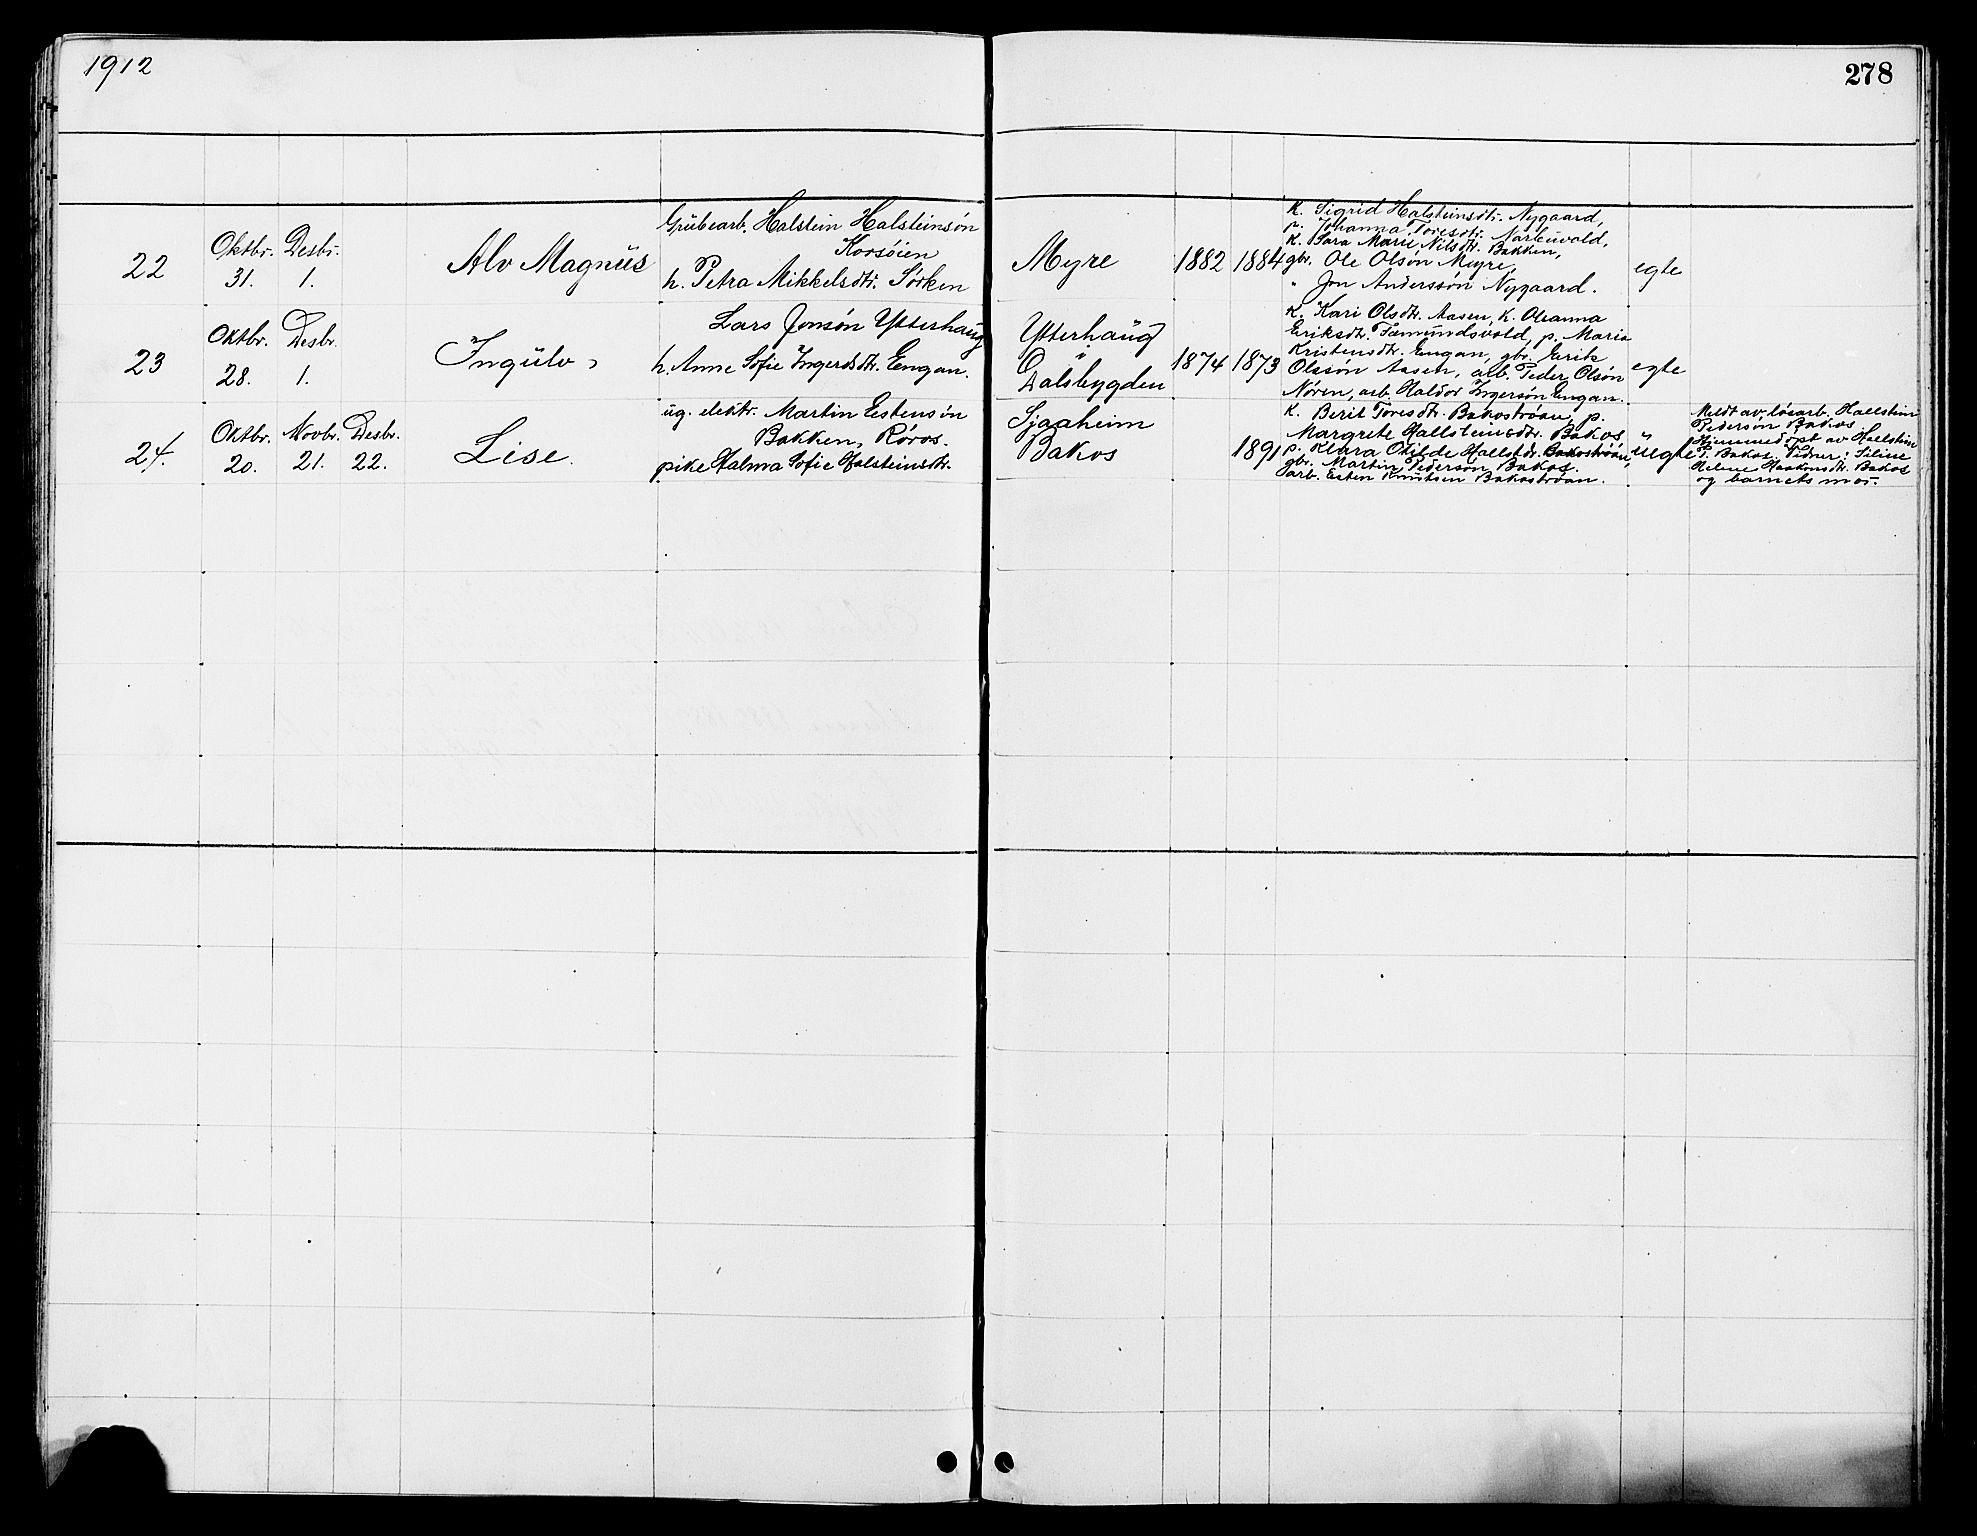 1912
278
22
Oktbr. Desbr.
31. 1.
Alv Magnüs
Grübearb. Halstein Halsteinsøn
Korsøien
h. Petra Mikkelsdtr. Sørken
Myre
1882 1884
k. Sigrid Halsteinsdtr. Nygaard,
p. Johanna Toresdtr. Narbuvold,
k. Sara Marie Nilsdtr. Bakken,
gbr. Ole Olsøn Myre,
" Jon Anderssøn Nygaard.
egte
23
Oktbr. Desbr.
28. 1.
Ingülv
Lars Jonsøn Ytterhaüg
h. Anne Sofie Ingersdtr. Engan.
Ytterhaüg
i
Dalsbygden
1874 1873
k. Kari Olsdtr. Aasen, k. Oleanna
Eriksdtr. Fæmundsvold, p. Maria
Kristensdtr. Engan, gbr. Erik
Olssøn Aasen, arb. Peder Olsøn
Nøren, arb. Haldor Ingersøn Engan.
egte
24.
Oktbr. Novbr. Desbr.
20. 21. 22.
Lise.
üg. elektr. Martin Estensøn
Bakken, Røros.
pike Halma Sofie Halsteinsdtr.
Sjaaheim
Bakos
1891
k. Berit Toresdtr. Bakostrøan, p.
Margrete Hallsteinsdtr. Bakos
p. Klara Otilde Hallstdr. Bakostrøan,
gbr. Martin Pedersøn Bakos.
arb. Esten Knutsen Bakostrøan.
üegte
Meldt av løsarb. Hallstein
Pedersøn Bakos
Hjemmedøpt av Hallstein
P. Bakos. Vidner: Siline
Helene Haakonsdtr. Bakos
og barnets mor.